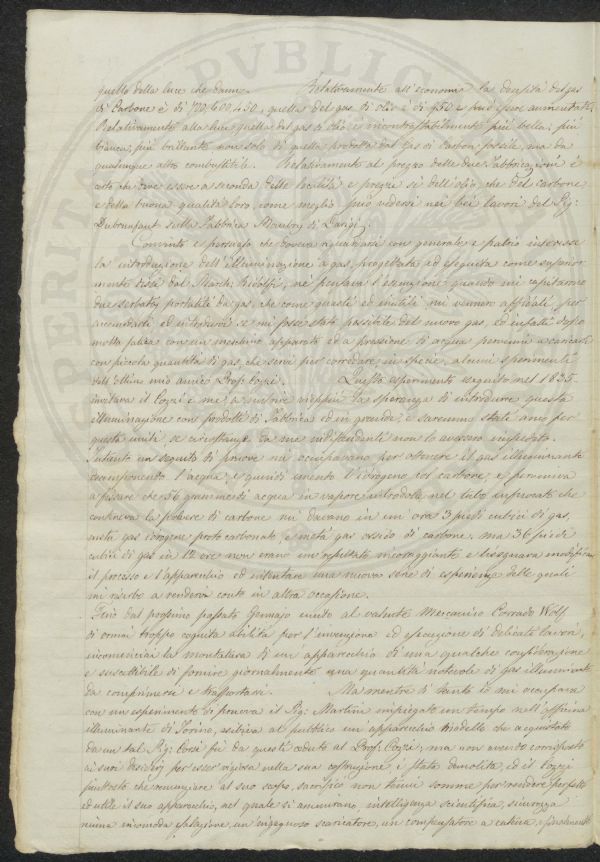 quello della luce che danno. Relativamente all'economia la densità del gas
di Carbone è di 700, 600, 450, quella del gas di olio è di 950 e può esser aumentata.
Relativamente alla luce quella del gas di olio è incontrastabilmente più bella, più
bianca, più brillante non solo di quella prodotta dal Gas di Carbon fossile, ma da
qualunque altro combustibile. Relativamente al prezzo delle due Fabbricazioni è
certo che deve essere a seconda delle località e prezzi sì dell'olio, che del carbone
e della buona qualità loro, come meglio può vedersi nei bei lavori del Sig:
Dubrunfaut sulla Fabbrica di Parigi.
Convinto e persuaso che doveva riguardarsi con generale e patrio interesse
la introduzione dell'illuminazione a gas, progettata ed eseguita come superior-
mente dissi dal March: Ridolfi, ne pensava l'estenzione quando mi capitarono
due serbatoj portabili da gas, che come guasti ed inutili mi vennero affidati per
accomodarli ed introdurvi se mi fosse stato possibile del nuovo gas, ed infatti dopo
molta fatica con un meschino apparato ed a pressione di acqua pervenni a caricarli
con piccola quantità di gas, che servì per corredare, in specie, alcuni sperimenti
dell'ottimo mio amico Prof: Cozzi. Questo esperimento eseguito nel 1835
invitava il Cozzi e me a nutrire vieppiù la speranza di introdurre questa
illuminazione con prodotti di Fabbrica ed in grande, e saremmo stati anco per
questa uniti se circostanze da me indipendenti non lo avessero impedito.
Intanto un seguito di prove mi occupavano per ottenere il gas illuminante
decomponendo l'acqua, e quindi unendo l'idrogeno col carbone, e perveniva
a fissare che 36 grammi di acqua in vapore introdotta nel tubo infuocato che
conteneva la polvere di carbone mi davano in un'ora 3 piedi cubici di gas,
metà gas idrogeno proto carbonato, e metà gas ossido di carbone, ma 36 piedi
cubici di gas in 12 ore non erano un resultato incoraggiante e bisognava modificare
il processo e l'apparecchio ed intentare una nuova serie di esperienze delle quali
mi riserbo a rendervi conto in altra occasione.
Fino dal prossimo passato Gennajo unito al valente Meccanico Corrado Wolf
di ormai troppo cognita abilità per l'invenzione ed esecuzione di delicati lavori,
incominciai la montatura di un'apparecchio di una qualche considerazione
e suscettibile di fornire giornalmente una quantità notevole di gas illuminante
da comprimersi e trasportarsi. Ma mentre di tanto io mi occupava
con un esperimento di prova il Sig: Martini impiegato un tempo nell'officina
illuminante di Torino, esibiva al pubblico un'apparecchio modello che acquistato
da un tal Sig: Corsi fu da questi ceduto al Prof: Cozzi, ma non avendo corrisposto
ai suoi desiderj per esser viziosa nella sua costruzione è stata demolita, ed il Cozzi
piuttosto che rinunziare al suo scopo, sacrificò non tenui somme per rendere perfetto
ed utile il suo apparecchio, nel quale si ammirano, intelligenza scientifica, sicurezza
niuna incomoda esalazione, un ingegnoso scaricatore, un compensatore a catena,